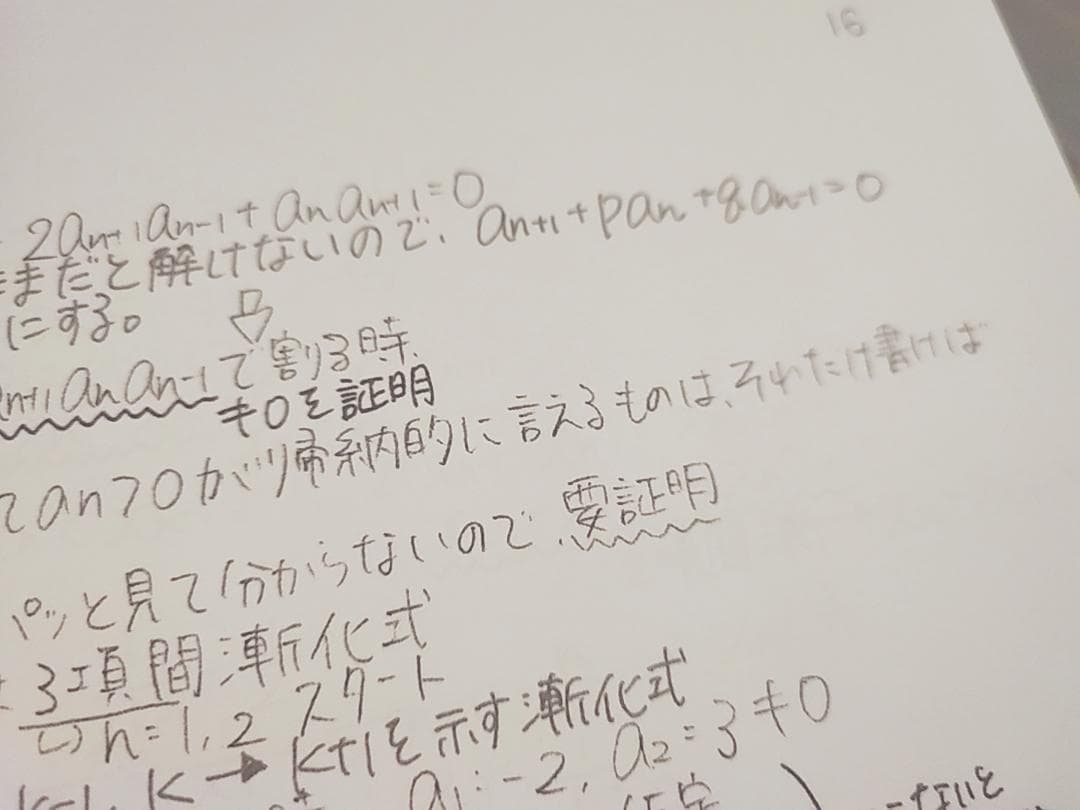 16
2an+1an-1+anan+1=0
まだと解けないので、an+1+pan+qan-1=0
にする。
n+1anan-1で割る時
≠0を証明
てan>0が帰納的に言えるものは、それだけ書けば
パッと見て分からないので要証明
3項間漸化式
n=1,2スタート
k-1,k→k+1を示す漸化式
a1=-2,a2=3≠0
ないと